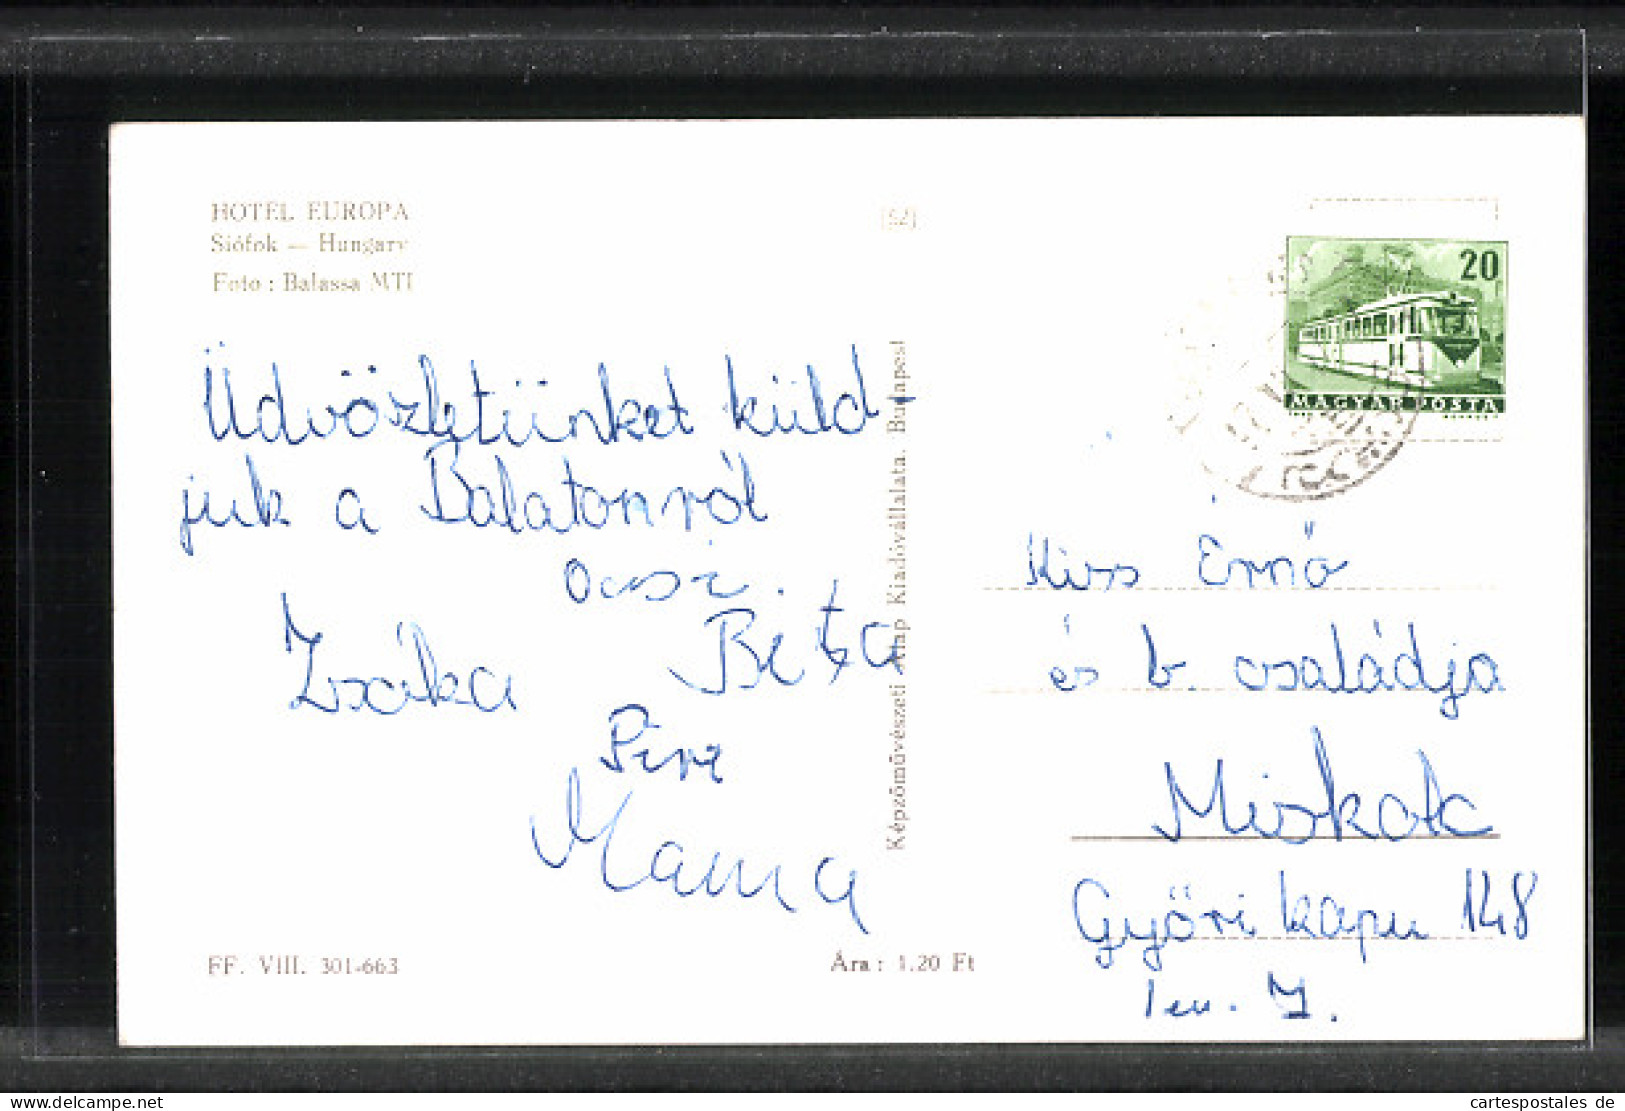 HOTEL EUROPA
Siófok — Hungary
Foto : Balassa MTI
(SZ)
20
MAGYAR POSTA
Üdvözletünket küld-
juk a Balatonról
Öcsi.
Zsóka Béta
Piri
Mama
Képzőművészeti Alap Kiadóvállalata, Budapest
Kiss Ernő
és b. családja
Miskolc
Győri kapu 148
I em. 4.
FF. VIII. 301-663
Ára : 1.20 Ft
www.cartespostales.de
cartespostales de